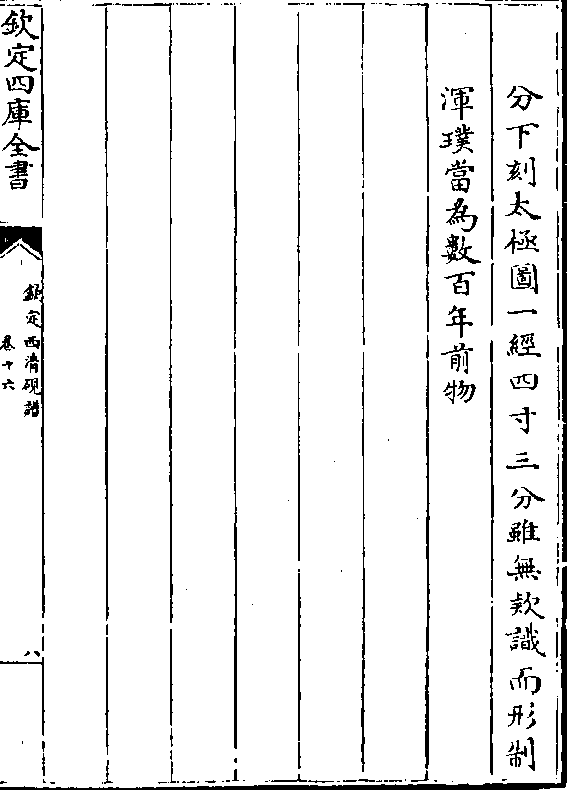 分下刻太極圖一經四寸三分雖無款識而形制
渾璞當為數百年前物
欽定四庫全書
欽定西清硯譜
卷十六
八